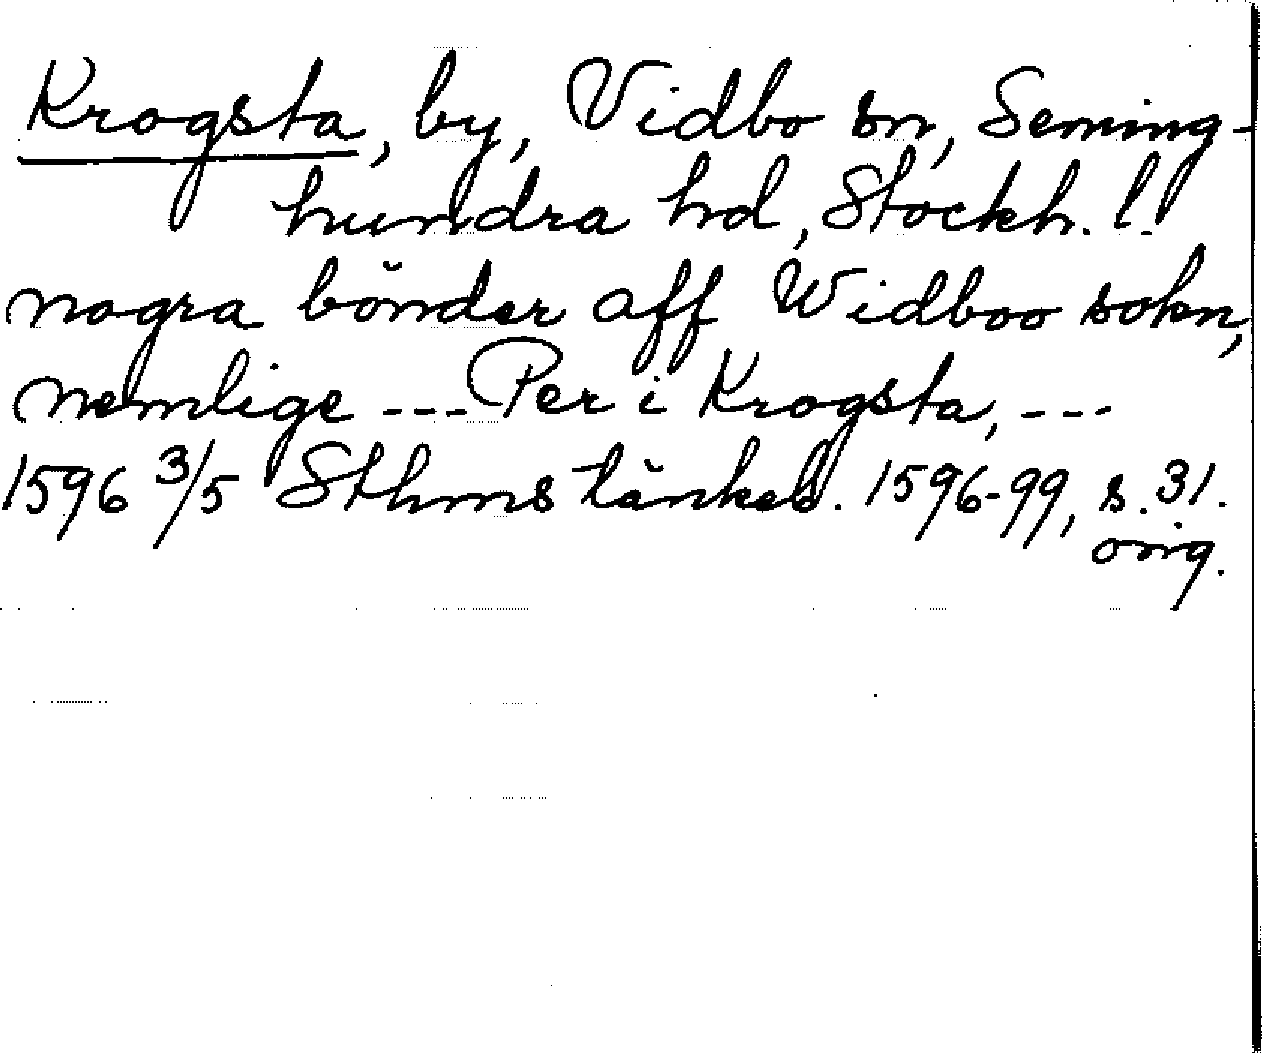 Krogsta, by, Vidbo sn, Seming-
hundra hd, Stockh. l.
nogra bönder aff Widboo sokn,
nemlige --- Per i Krogsta, ---
1596 3/5 Sthms tänkeb. 1596-99, s. 31.
orig.